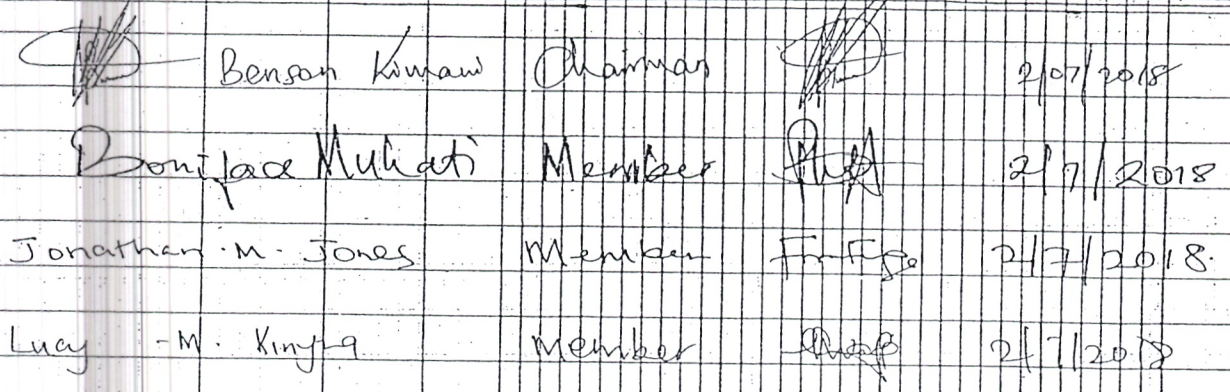 Benson Kimani Chairman 2/07/2018
Boniface Muhati Member 2/7/2018
Jonathan .M. Jones Member 2/7/2018.
Lucy -M. Member 2/7/2018